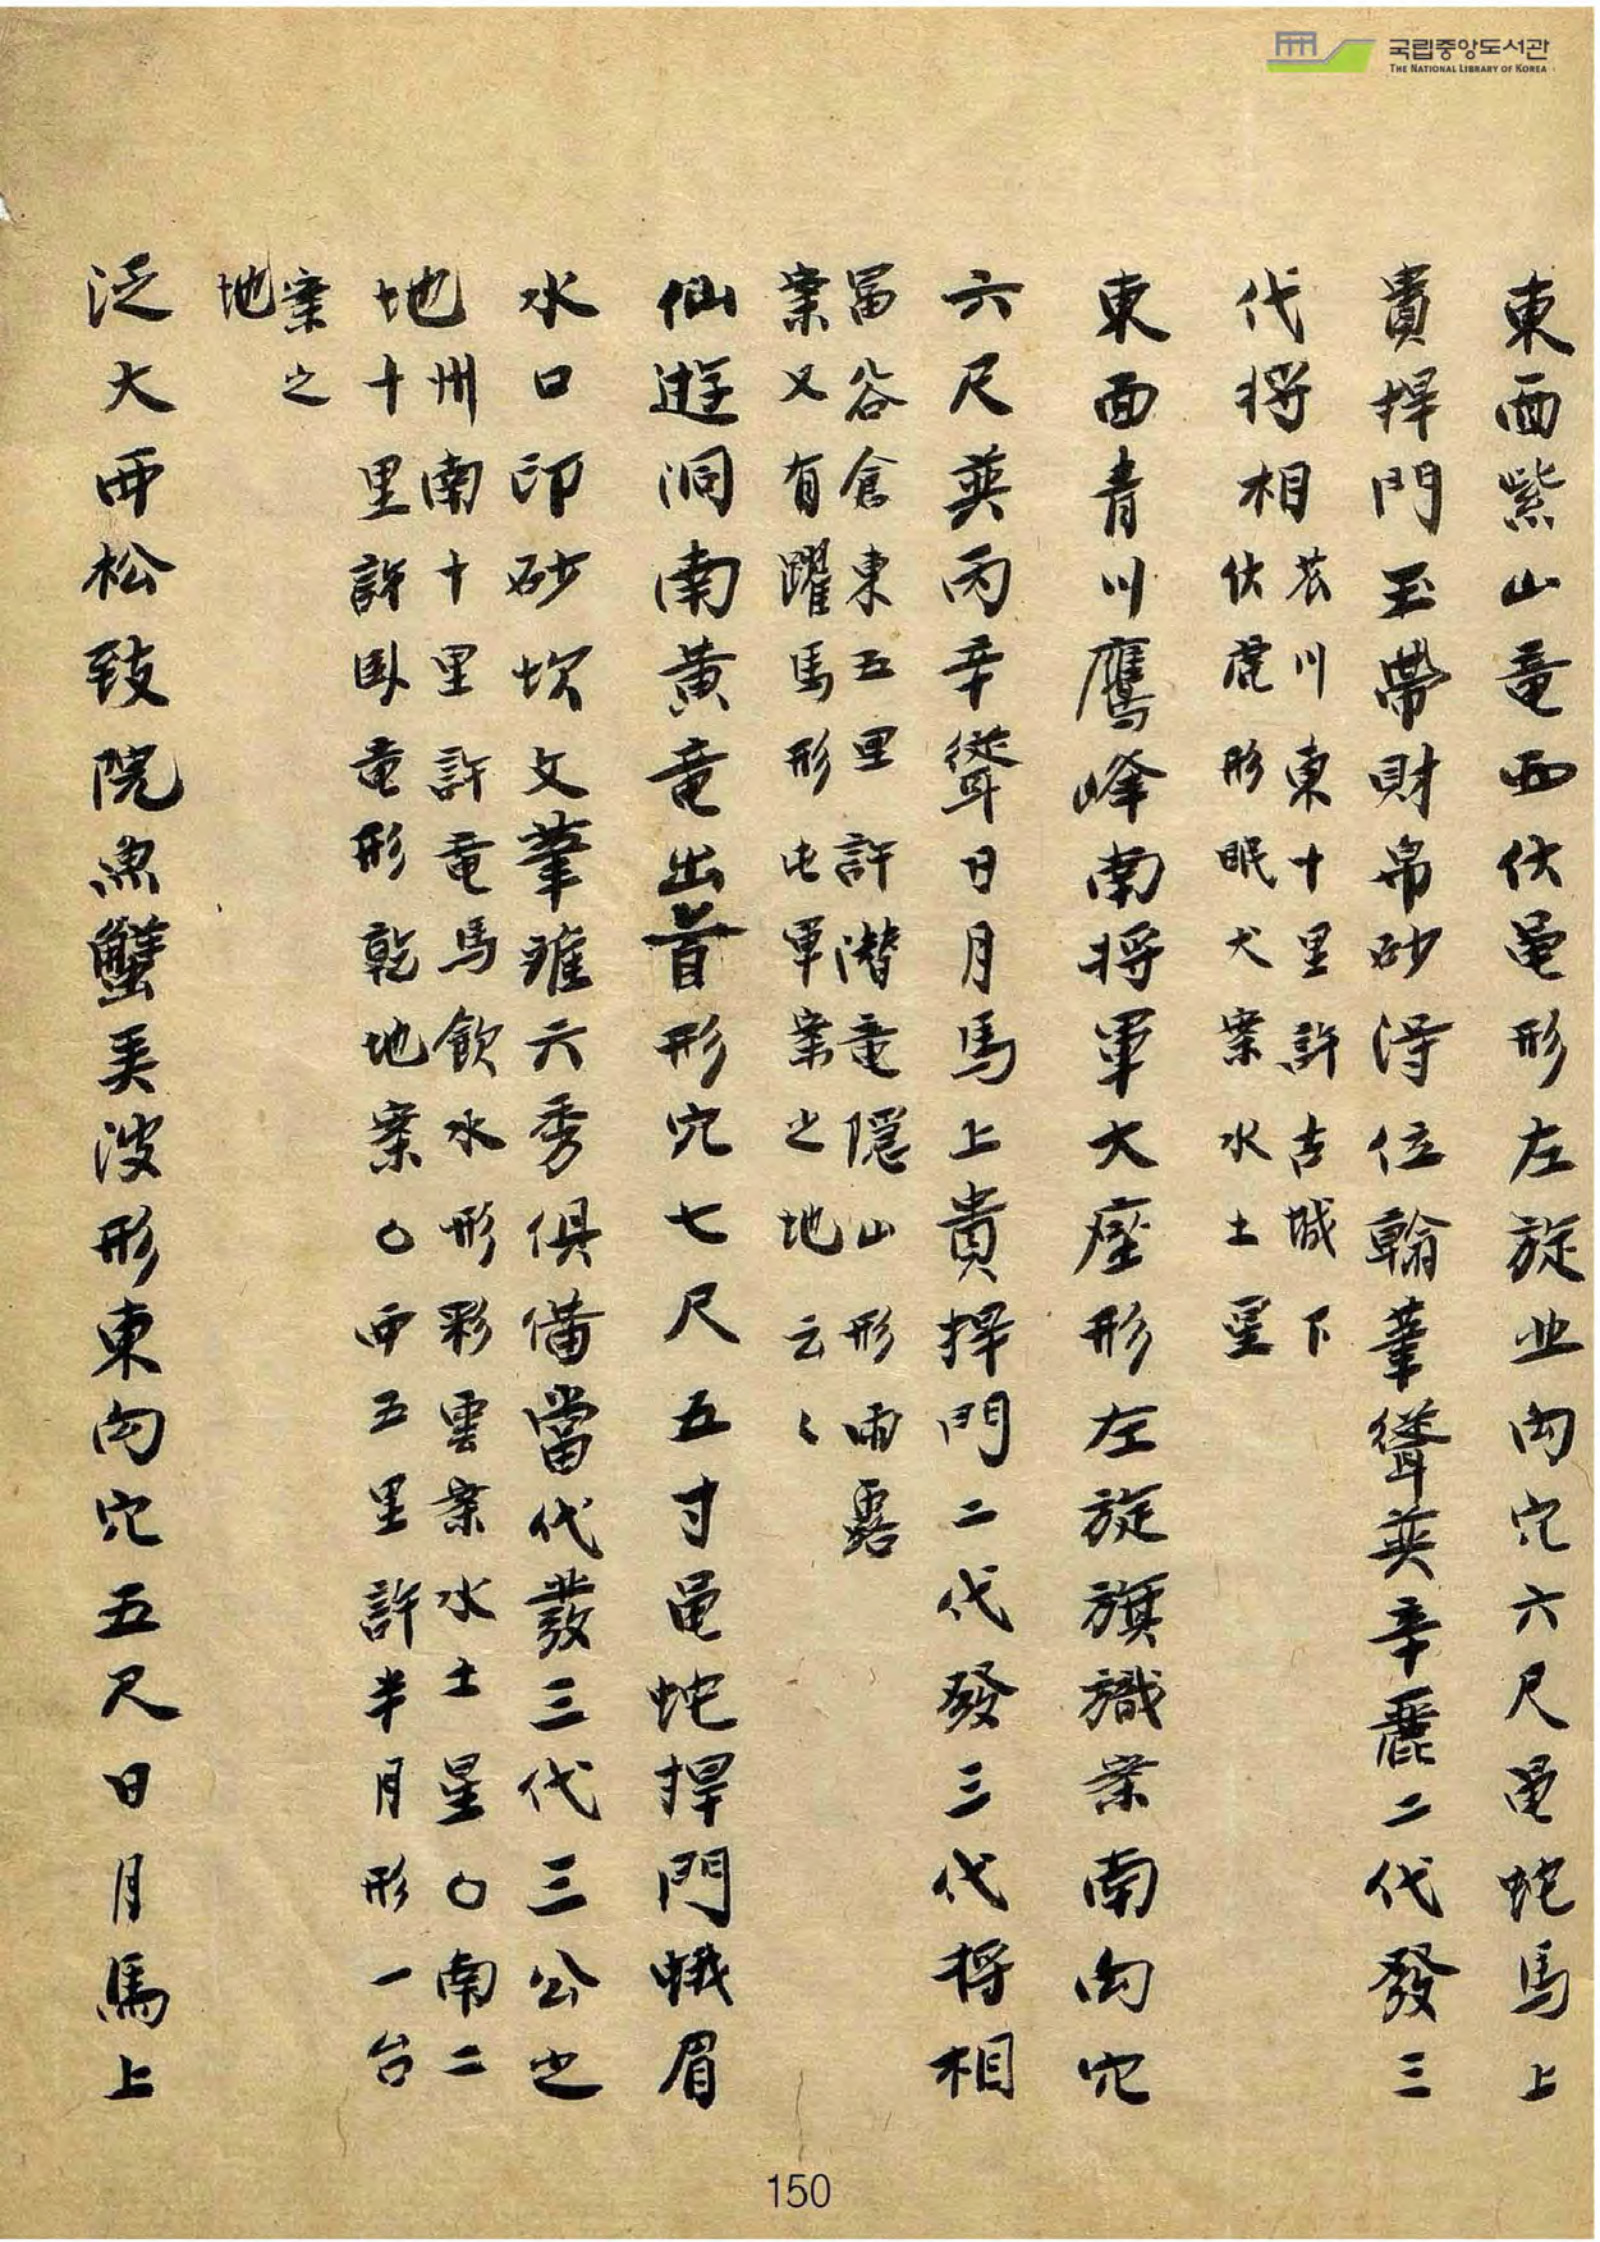 국립중앙도서관
THE NATIONAL LIBRARY OF KOREA
東面紫山竜西伏黽形左旋北向穴六尺黽蛇馬上
貴捍門玉帶財帛砂淂位翰華聳英辛麗二代發三
代將相
衣川東十里許古城下
伏虎形眠犬案水土星
東面青川鷹峰南將軍大座形左旋旗識案南向穴
六尺英丙辛聳日月馬上貴捍門二代發三代將相
冨谷倉東五里許潛竜隠山形雨露
案又有躍馬形屯軍案之地云〻
仙遊洞南黃竜出首形穴七尺五寸黽蛇捍門蛾眉
水口印砂坎文華雖六秀俱備當代發三代三公之
地
州南十里許竜馬飲水形彩雲案水土星○南二
十里許臥竜形乾地案○西五里許半月形一台
案之
地
泛大西松致院魚蟹美波形東向穴五尺日月馬上
150